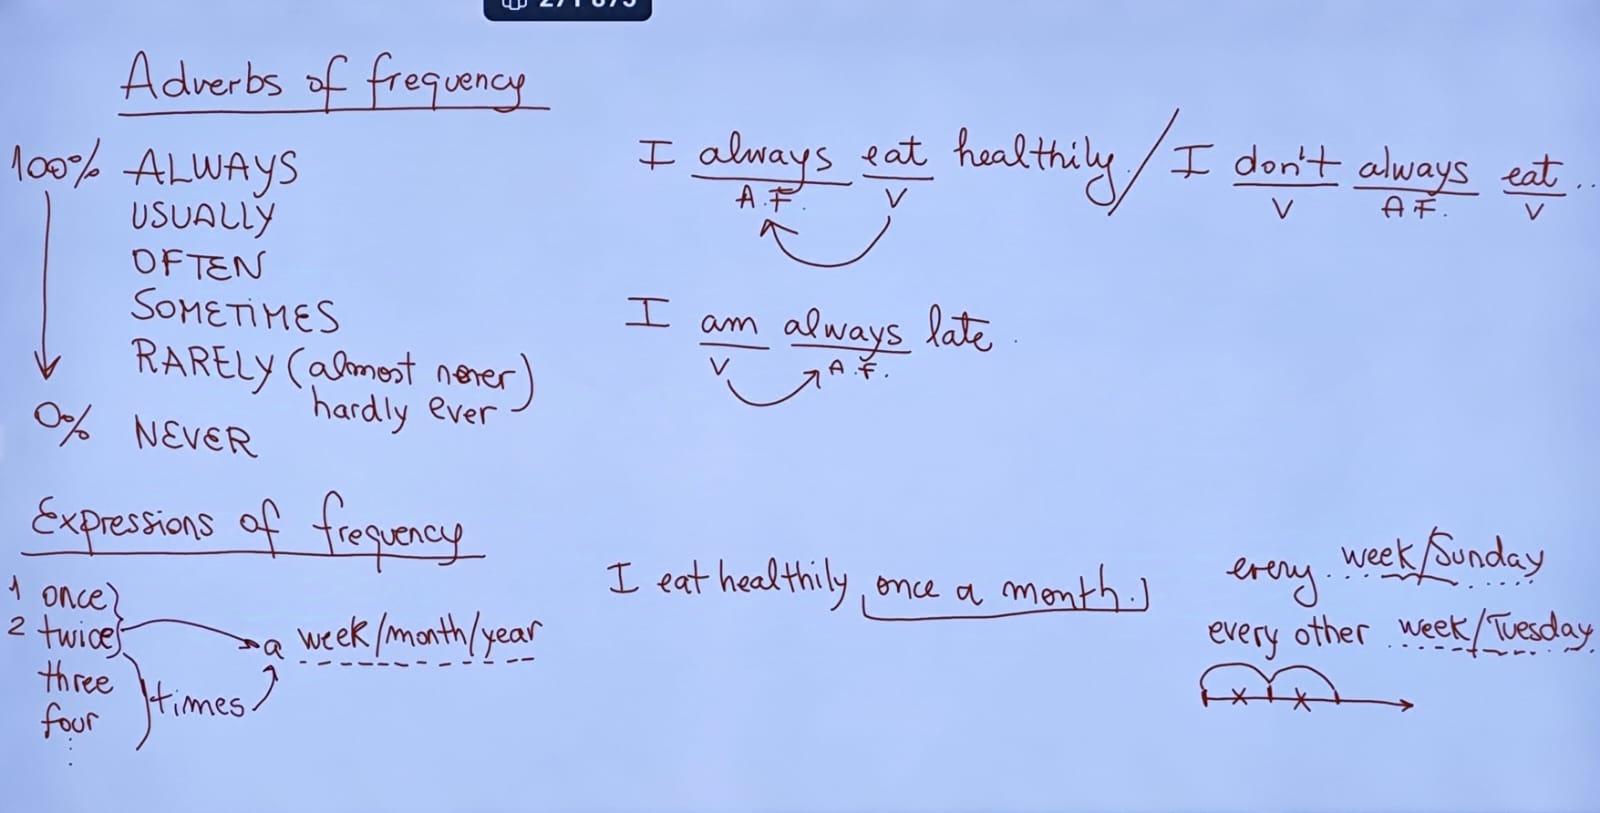 Adverbs of frequency
100% ALWAYS
USUALLY
OFTEN
SOMETIMES
RARELY (almost never)
hardly ever
0% NEVER
I always eat healthily. / I don't always eat ..
A.F. V V A.F. V
I am always late.
V A.F.
Expressions of frequency
1 once
2 twice
three
four
times
a week/month/year
I eat healthily once a month.
every week/Sunday
every other week/Tuesday